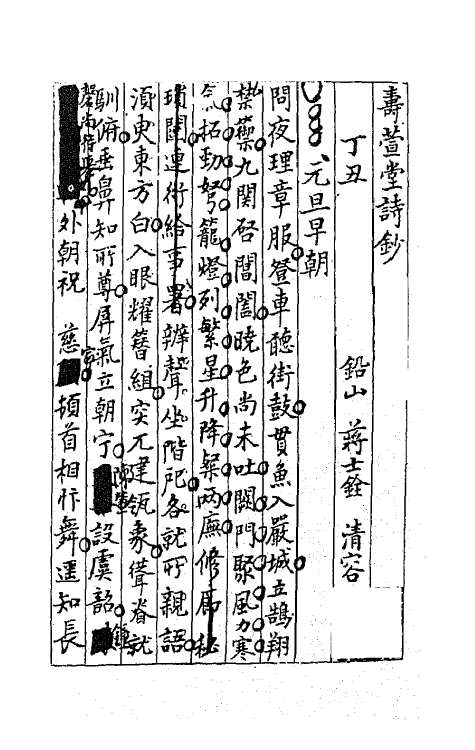 壽萱堂詩鈔
丁丑 鉛山 蔣士銓 清容
元旦早朝
問夜理章服登車聽街鼓貫魚入嚴城立鵠翔
禁藥九關啓閶闔曉色尚未吐闕門聚風力寒
氣拓勁弩籠燈列繁星升降粲兩廡修馬秘
瑣闥連術給事署辨聲坐階戺各就所親語
須臾東方白入眼耀簪組突兀建瓴象聳脊就
馴俯垂鼻知所尊屏氣立朝宁陳設虞韶鐘
磬尚
外朝祝 慈 頓首相忭舞遥知長